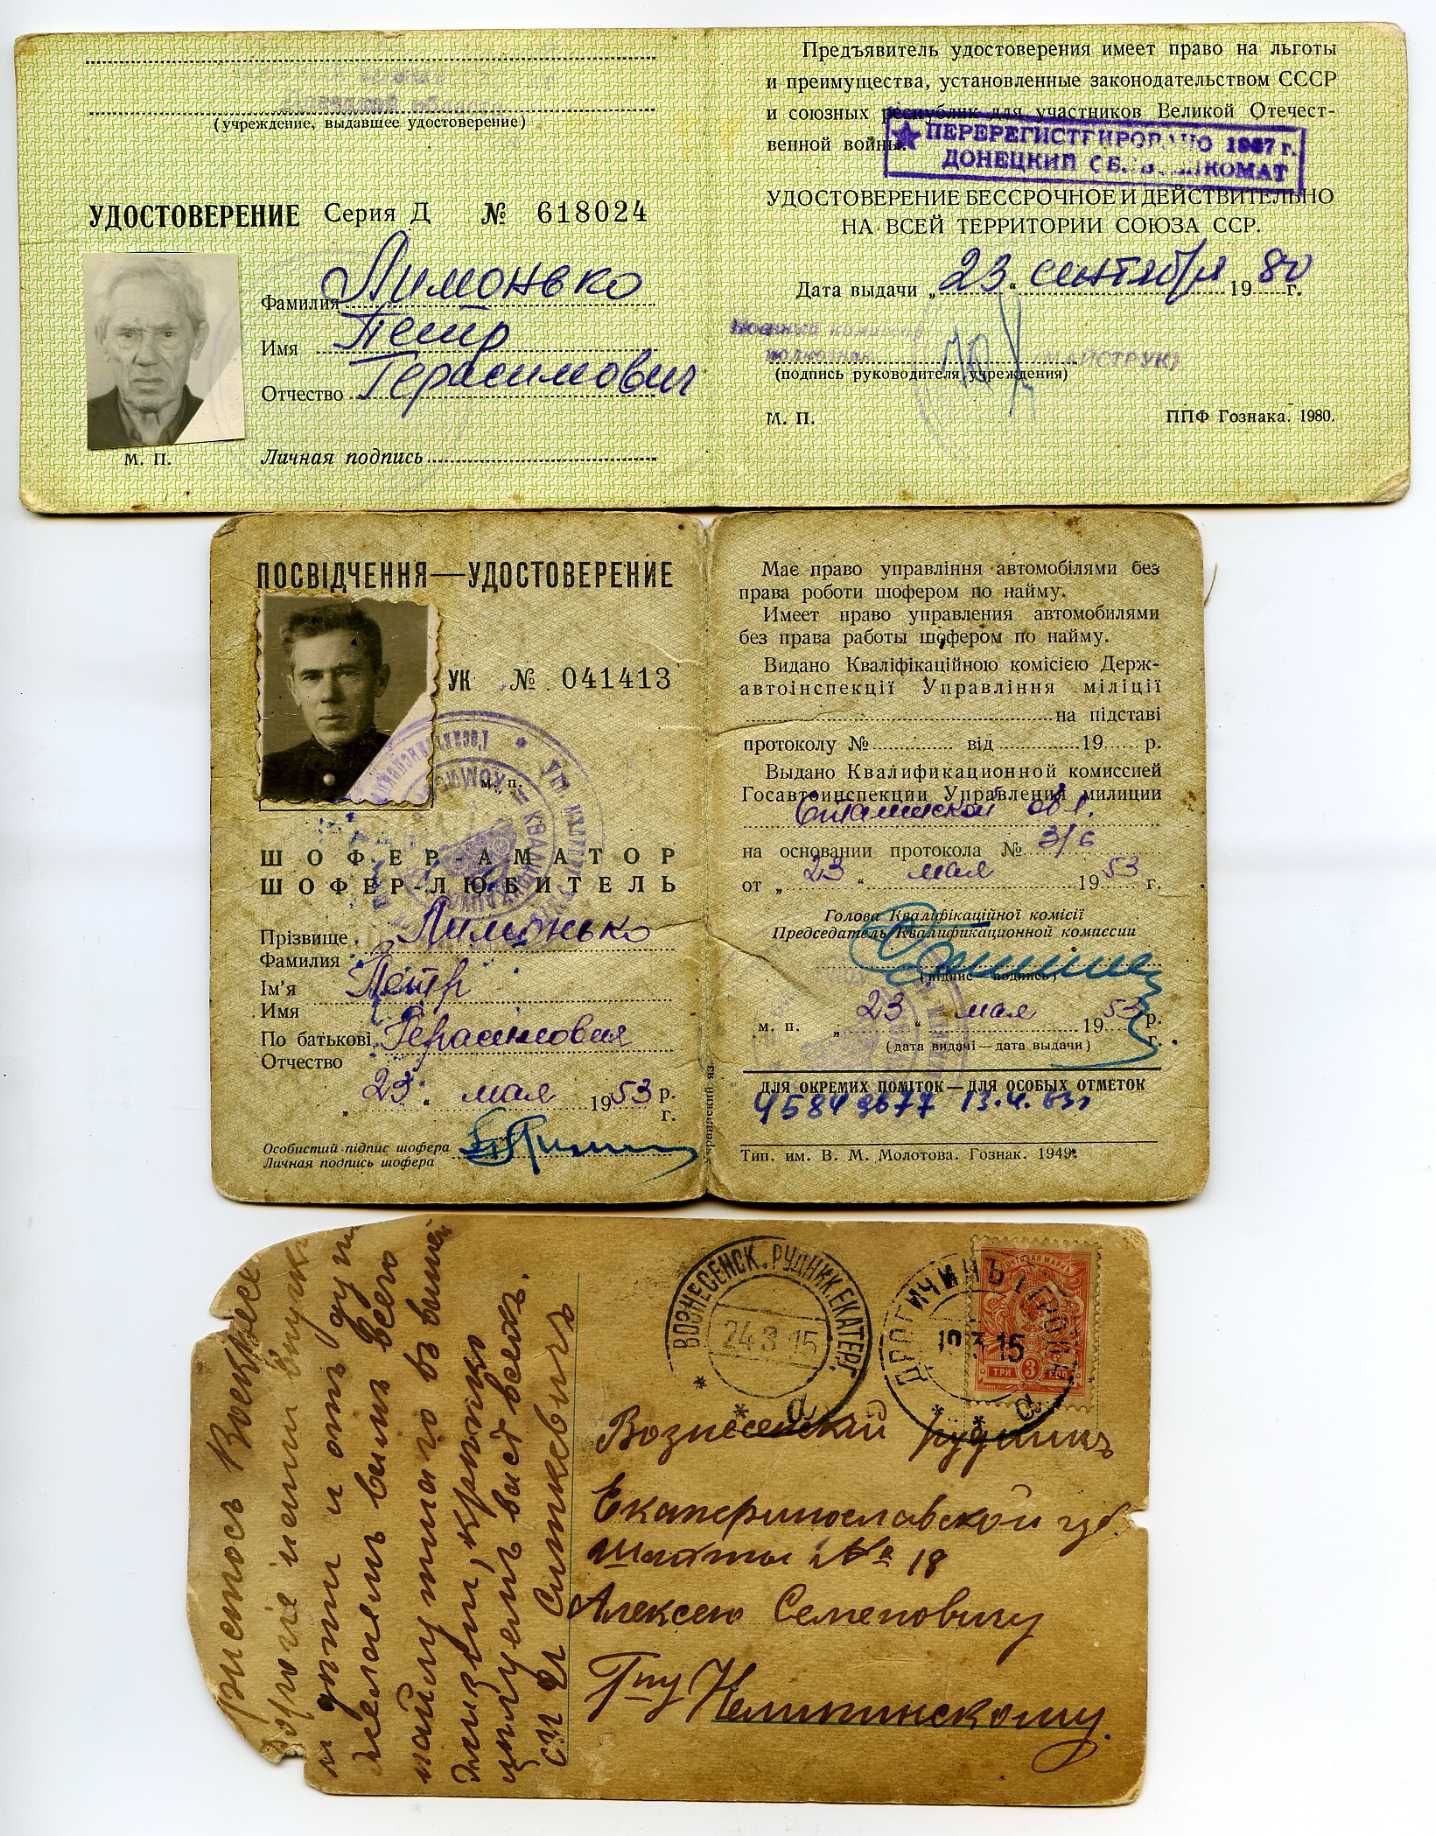 (учреждение, выдавшее удостоверение)
УДОСТОВЕРЕНИЕ Серия Д № 618024
Фамилия Лимонько
Имя Петр
Отчество Герасимович
М. П.
Личная подпись
Предъявитель удостоверения имеет право на льготы
и преимущества, установленные законодательством СССР
и союзных республик для участников Великой Отечест-
венной войны.
ПЕРЕРЕГИСТРИРОВАНО 1987 г.
ДОНЕЦКИЙ ОБЛВОЕНКОМАТ
УДОСТОВЕРЕНИЕ БЕССРОЧНОЕ И ДЕЙСТВИТЕЛЬНО
НА ВСЕЙ ТЕРРИТОРИИ СОЮЗА ССР.
Дата выдачи „23“ сентября 1980 г.
Военный комиссар
полковник (МАЙСТРУК)
(подпись руководителя учреждения)
М. П.
ППФ Гознака. 1980.
ПОСВІДЧЕННЯ—УДОСТОВЕРЕНИЕ
УК № 041413
м. п.
ШОФЕР-АМАТОР
ШОФЕР-ЛЮБИТЕЛЬ
Прізвище
Фамилия Лимонько
Ім'я
Имя Петр
По батькові
Отчество Герасимович
„23“ мая 1953 р.
г.
Особистий підпис шофера
Личная подпись шофера
Має право управління автомобілями без
права роботи шофером по найму.
Имеет право управления автомобилями
без права работы шофером по найму.
Видано Кваліфікаційною комісією Держ-
автоінспекції Управління міліції
на підставі
протоколу № від 19 р.
Выдано Квалификационной комиссией
Госавтоинспекции Управления милиции
Сталинской обл.
на основании протокола № 3/6
от „23“ мая 1953 г.
Голова Кваліфікаційної комісії
Председатель Квалификационной комиссии
(підпис — подпись)
м. п. „23“ мая 1953 р.
г.
(дата видачі — дата выдачи)
ДЛЯ ОКРЕМИХ ПОМІТОК — ДЛЯ ОСОБЫХ ОТМЕТОК
Тип. им. В. М. Молотова. Гознак. 1949.
ВОЗНЕСЕНСК. РУДНИК. ЕКАТЕР. Г.
24 3 15
а
ДРОГИЧИНЪ ГРОДН.
3 15
а
ТРИ 3 КОП
Вознесенский рудникъ
Екатеринославской губ.
Шахты № 18
Алексею Семеновичу
Гну Нелипинскому.
Дорогіе наши внуки
и дѣти и отъ души
желаемъ вамъ всего
жизни, крѣпко
цѣлуемъ васъ всехъ.